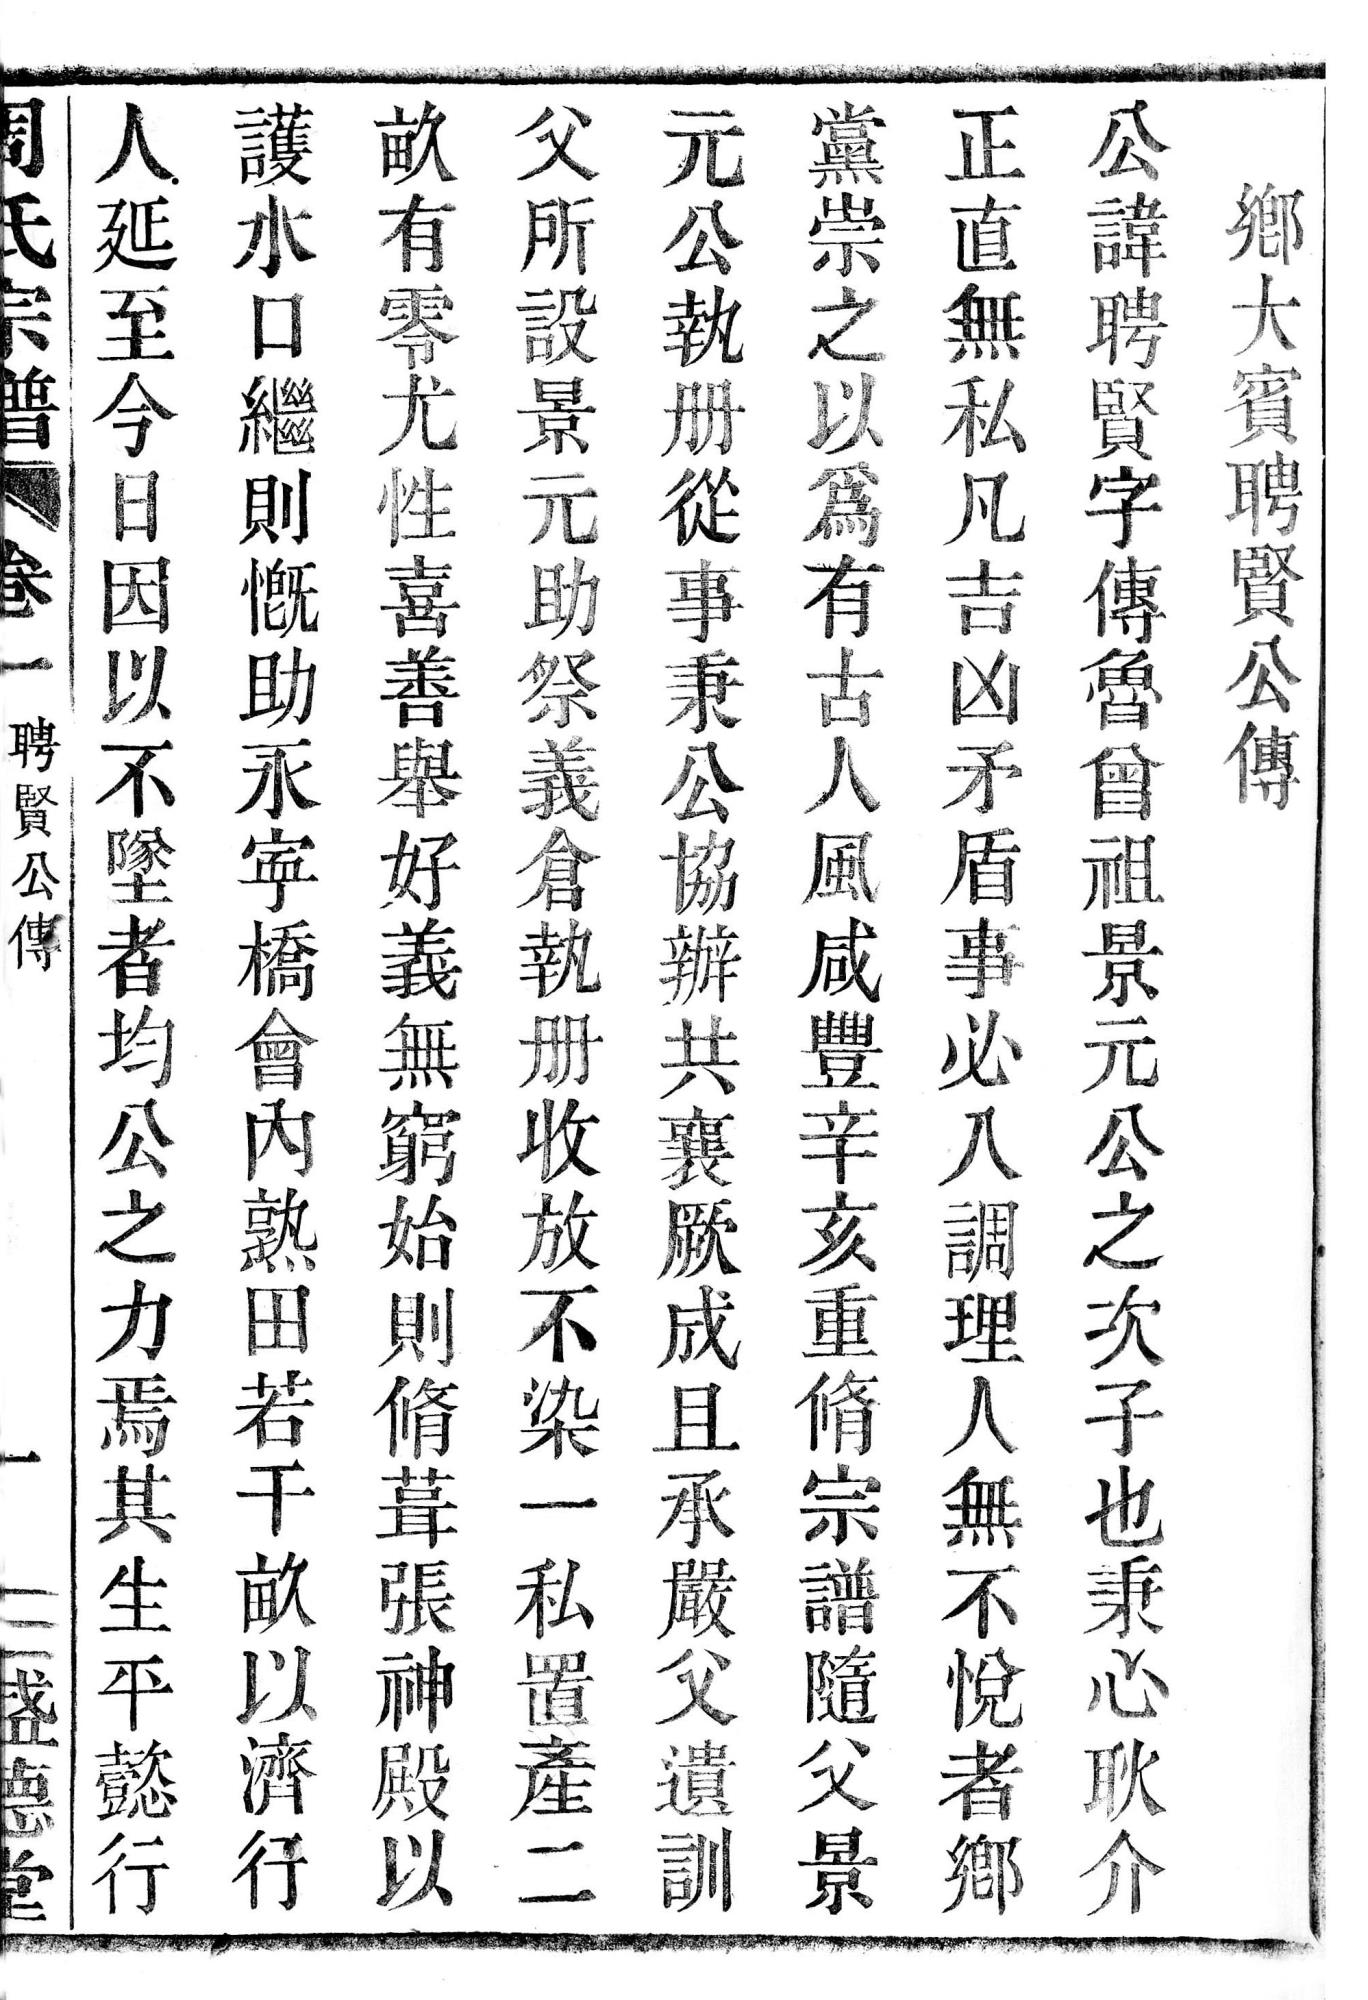 鄉大賓聘賢公傳
公諱聘賢字傳魯曾祖景元公之次子也秉心耿介
正直無私凡吉凶矛盾事必入調理人無不悅者鄉
黨崇之以爲有古人風咸豐辛亥重脩宗譜隨父景
元公執册從事秉公協辦共襄厥成且承嚴父遺訓
父所設景元助祭義倉執册收放不染一私置產二
畝有零尤性喜善舉好義無窮始則脩葺張神殿以
護水口繼則慨助永寧橋會內熟田若干畝以濟行
人延至今日因以不墜者均公之力焉其生平懿行
周氏宗譜 卷一 聘賢公傳 一 盛德堂